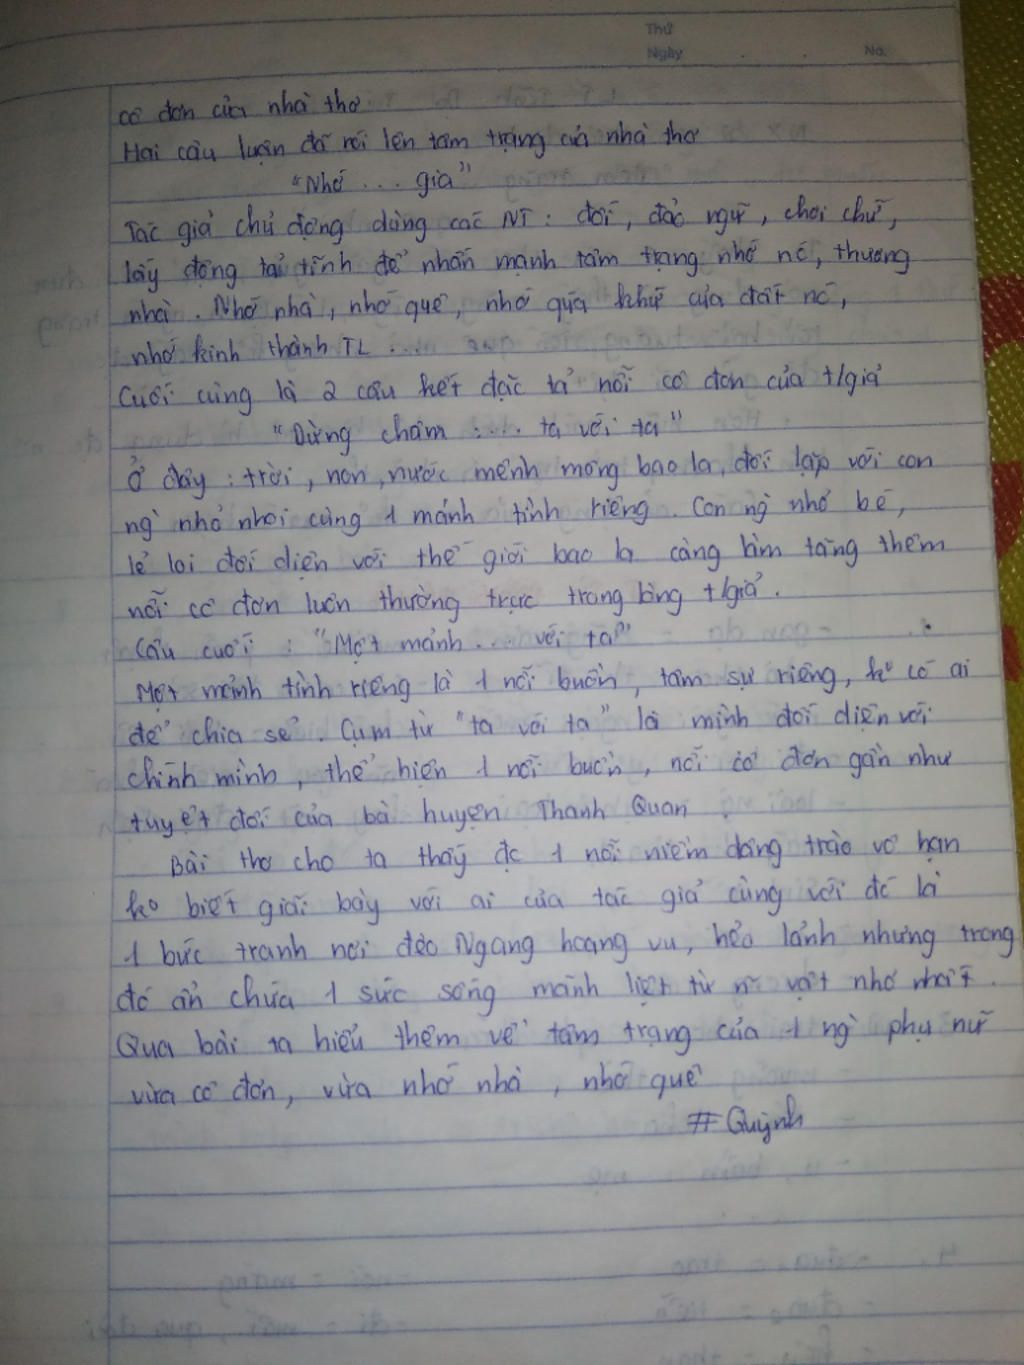 Thứ
Ngày . . No.
cô đơn của nhà thơ
Hai câu luận đã nói lên tâm trạng của nhà thơ
"Nhớ ... gia"
Tác giả chủ động dùng các NT: đối, đảo ngữ, chơi chữ,
lấy động tả tĩnh để nhấn mạnh tâm trạng nhớ nc, thương
nhà. Nhớ nhà, nhớ quê, nhớ quá khứ của đất nc,
nhớ kinh thành TL ...
Cuối cùng là 2 câu kết đặc tả nỗi cô đơn của t/giả
"Dừng chân .... ta với ta"
Ở đây: trời, non, nước mênh mông bao la, đối lập với con
ng` nhỏ nhoi cùng 1 mảnh tình riêng. Con ng` nhỏ bé,
lẻ loi đối diện với thế giới bao la càng làm tăng thêm
nỗi cô đơn luôn thường trực trong lòng t/giả.
Câu cuối: "Một mảnh ... với ta"
Một mảnh tình riêng là 1 nỗi buồn, tâm sự riêng, ko có ai
để chia sẻ. Cụm từ "ta với ta" là mình đối diện với
chính mình, thể hiện 1 nỗi buồn, nỗi cô đơn gần như
tuyệt đối của bà huyện Thanh Quan.
Bài thơ cho ta thấy đc 1 nỗi niềm dâng trào vô hạn
ko biết giãi bày với ai của tác giả cùng với đó là
1 bức tranh nơi đèo Ngang hoang vu, hẻo lánh nhưng trong
đó ẩn chứa 1 sức sống mãnh liệt từ vật nhỏ nhất.
Qua bài ta hiểu thêm về tâm trạng của 1 ng` phụ nữ
vừa cô đơn, vừa nhớ nhà, nhớ quê
# Quỳnh